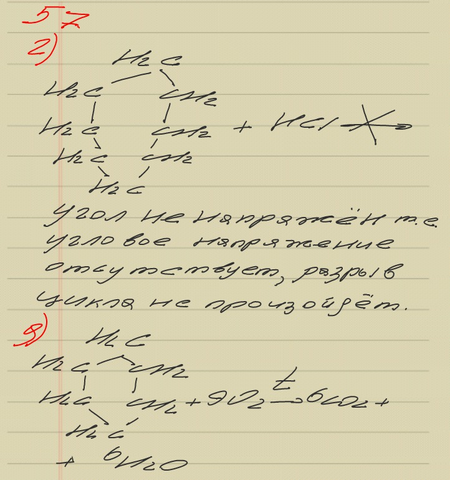 57
2)
H₂C
H₂C CH₂
H₂C CH₂ + HCl
H₂C CH₂
H₂C
Угол не напряжён т.е.
угловое напряжение
отсутствует, разрыв
цикла не произойдёт.
H₂C
H₂C CH₂
H₂C CH₂ + 9O₂ t→ 6CO₂ +
H₂C
+ 6H₂O